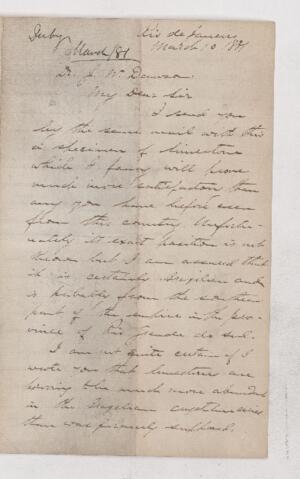 Derby
March/81
Rio de Janeiro
March 10 81
Dr. J. W. Dawson
My Dear Sir
I send you
by the same mail with this
a specimen of limestone
which I fancy will prove
much more satisfactory than
any you have before seen
from this country. Unfortu-
nately its exact position is not
known but I am assured that
it is certainly Brazilian and
is probably from the southern
part of the empire in the pro-
vince of Rio Grande do Sul.
I am not quite certain if I
wrote you that limestones are
proving to be much more abundant
in the Brazilian crystalline series
than was previously supposed.